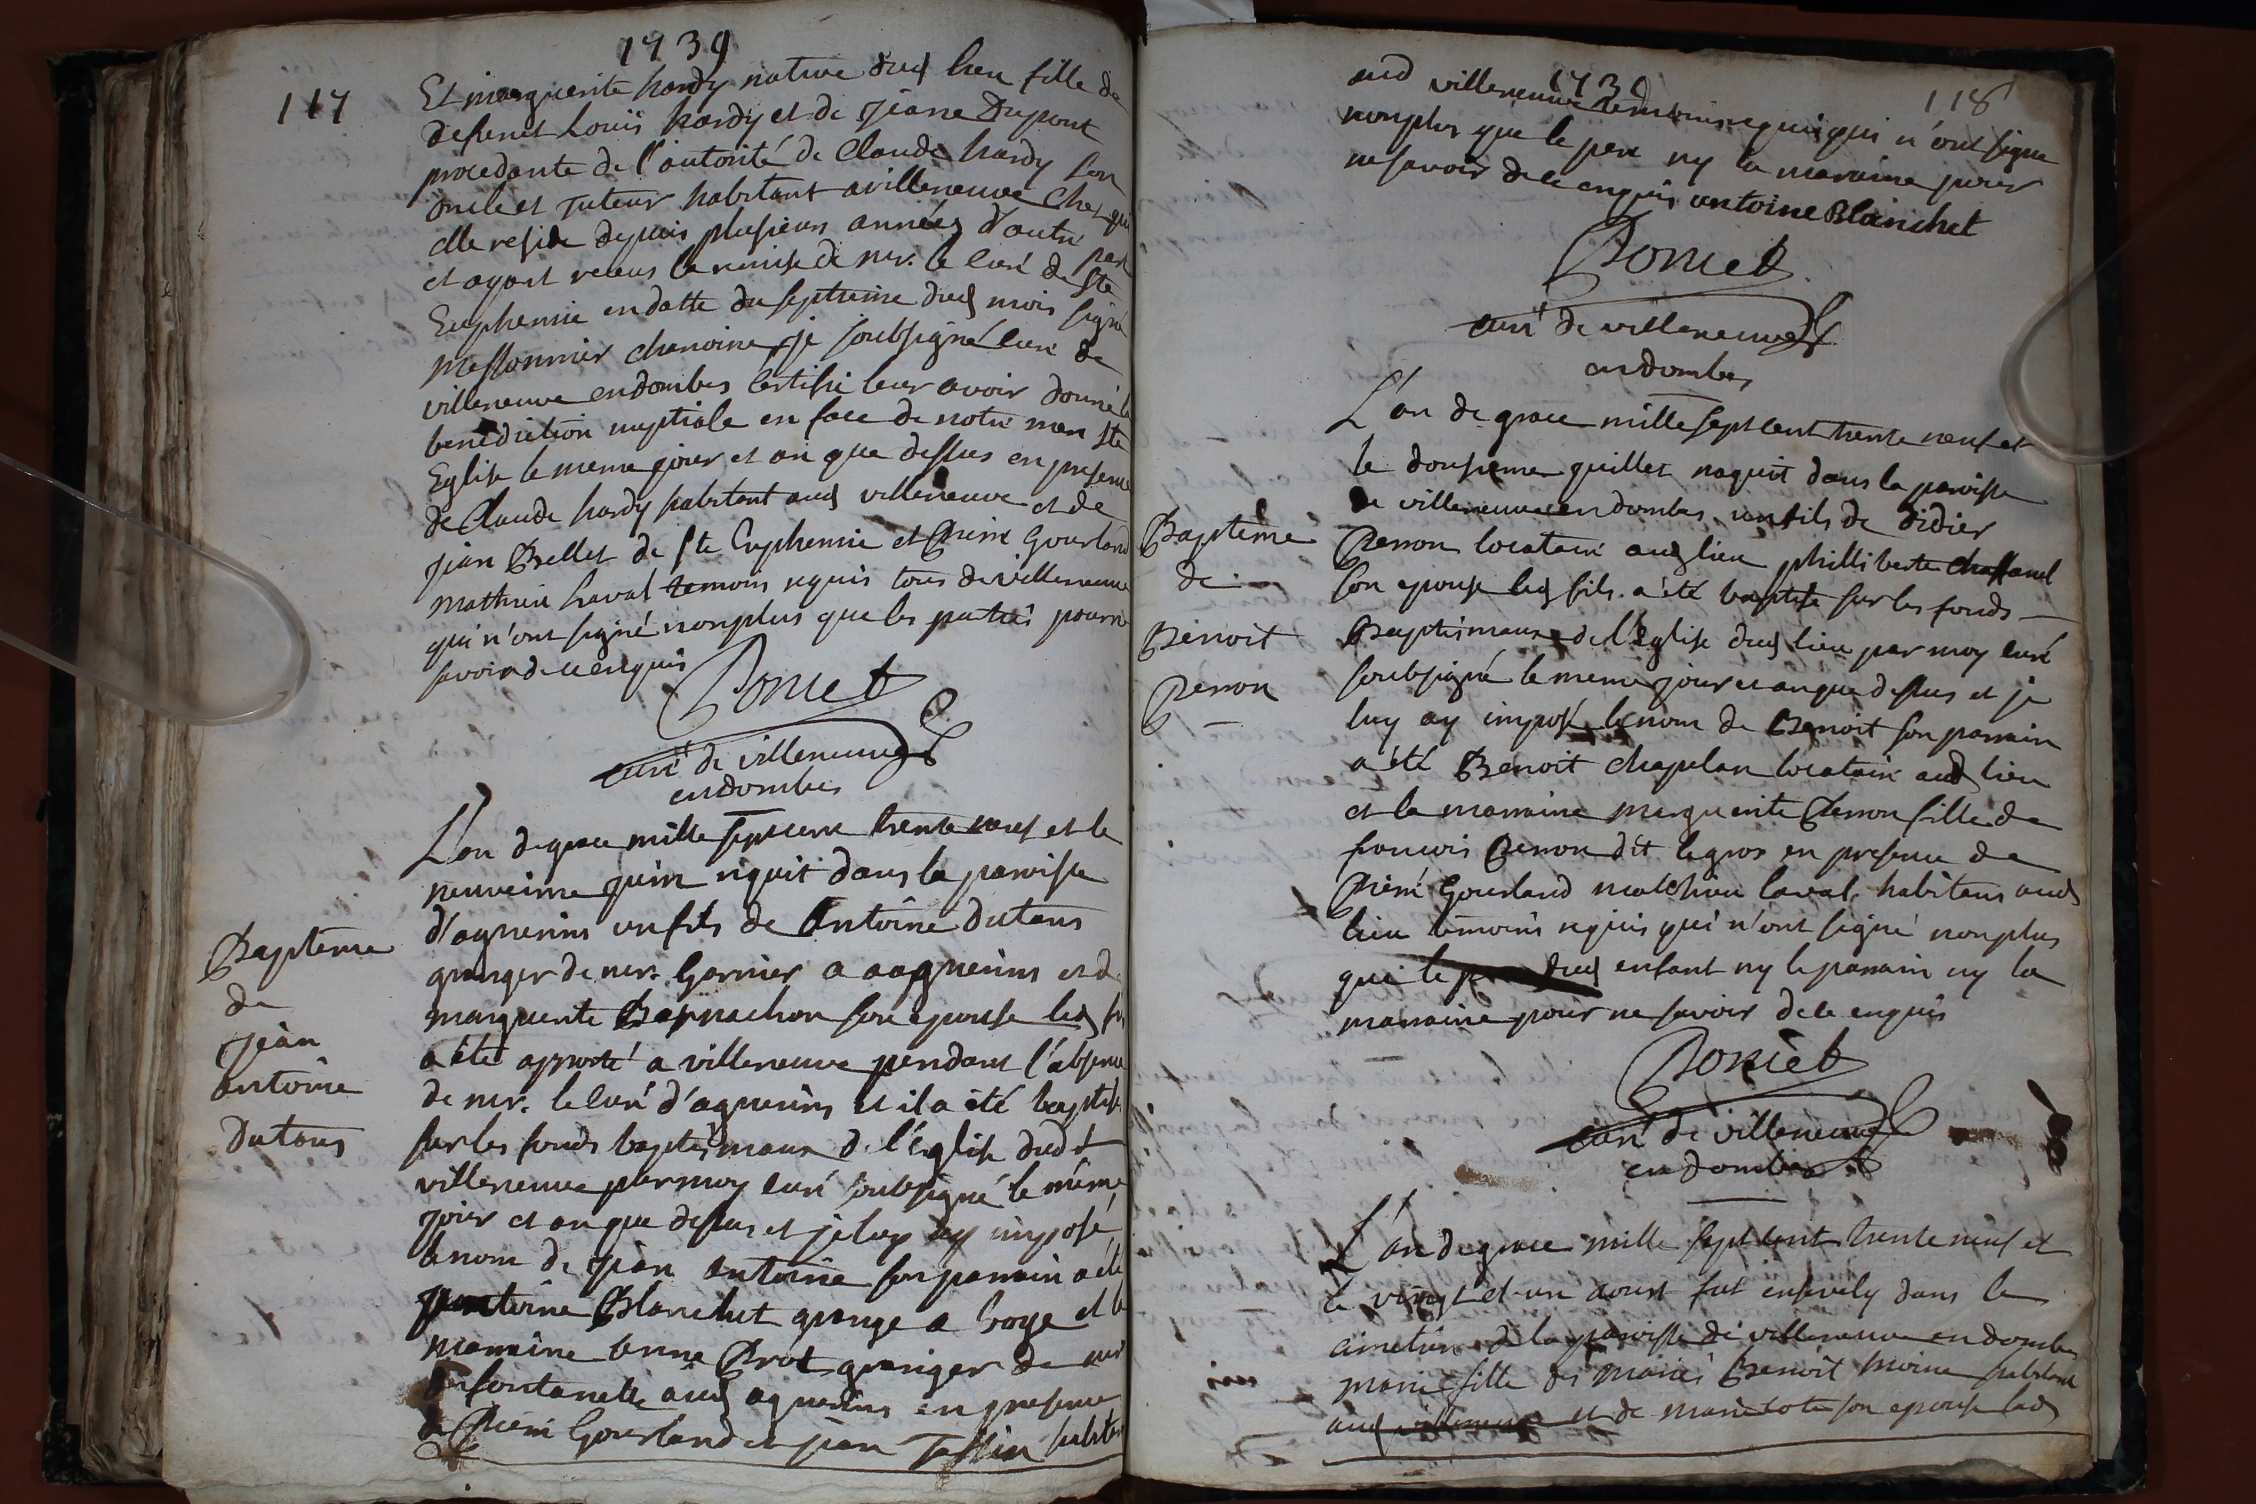 1739
117
Et marguerite hardy native dud lieu fille de
defunct Louis hardy et de Jeane Dupont
procedante de l'autorité de Claude hardy son
oncle et Tuteur habitant a villeneuve chez qui
elle reside depuis plusieurs années d'autre part
et ayant receus la remise de mr. le curé de Ste
Euphemie en datte du septieme dud mois signé
Messonnier chanoine, je soubsigné curé de
villeneuve en dombes certifie leur avoir donné la
benediction nuptiale en face de notre mere ste
Eglise le meme jour et an que dessus en presence
de Claude hardy habitant aud villeneuve et de
jean Bellet de ste Euphemie et Pierre Gourland
mathieu Laval temoins requis tous de villeneuve
qui n'ont signé nonplus que les parties pour ne
savoir de ce enquis
Poncet
curé de villeneuve
en dombes
L'an de grace mille sept cent trente neuf et le
neuveime juin nquit dans la paroisse
d'agnerins un fils de Antoine Dutans
granger de mr. Garnier a aagnerins et de
marguerite Bernachon son epouse led fils
a été apporté a villeneuve pendant l'absence
de mr. le curé d'agnerins et il a été baptisé
sur les fonds baptismaux de l'Eglise dudt
villeneuve par moy curé soubsigné le même
jour et an que dessus et je luy ay imposé
le nom de Jean antoine son parrain a été
antoine Blanchet grange a et la
marraine anne Prat granger de mr
De fontanelle aud agnerins en presence
de Pierre Gourland et jean Tassin habitans
Bapteme
de
Jean
antoine
Dutans
1739
118
aud villeneuve temoins requis qui n'ont signé
nonplus que le pere ny la maraine pour
ne savoir de ce enquis antoine Blanchet
Poncet
curé de villeneuve
en dombes
L'an de grace mille sept cent trente neuf et
le dousieme juillet naquit dans la paroisse
de villeneuve en dombes un fils de didier
Perron locataire aud lieu philliberte chassanel
son epouse led fils a été baptisé sur les fonds
Baptismaux de l'Eglise dud lieu par moy curé
soubsigné le meme jour et an que dessus et je
luy ay imposé le nom de Benoit son parrain
a été Benoit chapelan locataire aud lieu
et la marraine marguerite Perron fille de
francois Perron dit legros en presence de
Pierre Gourland matthieu laval habitans aud
lieu temoins requis qui n'ont signé nonplus
que le dud enfant ny le parrain ny la
marraine pour ne savoir de ce enquis
Poncet
curé de villeneuve
en dombes
Bapteme
de
Benoit
Perron
L'an de grace mille sept cent trente neuf et
le vingt et un aoust fut ensevely dans le
cimetiere de la paroisse de villeneuve en dombes
marie fille des mariés Benoit habitant
aud villeneuve et de marie son epouse lad